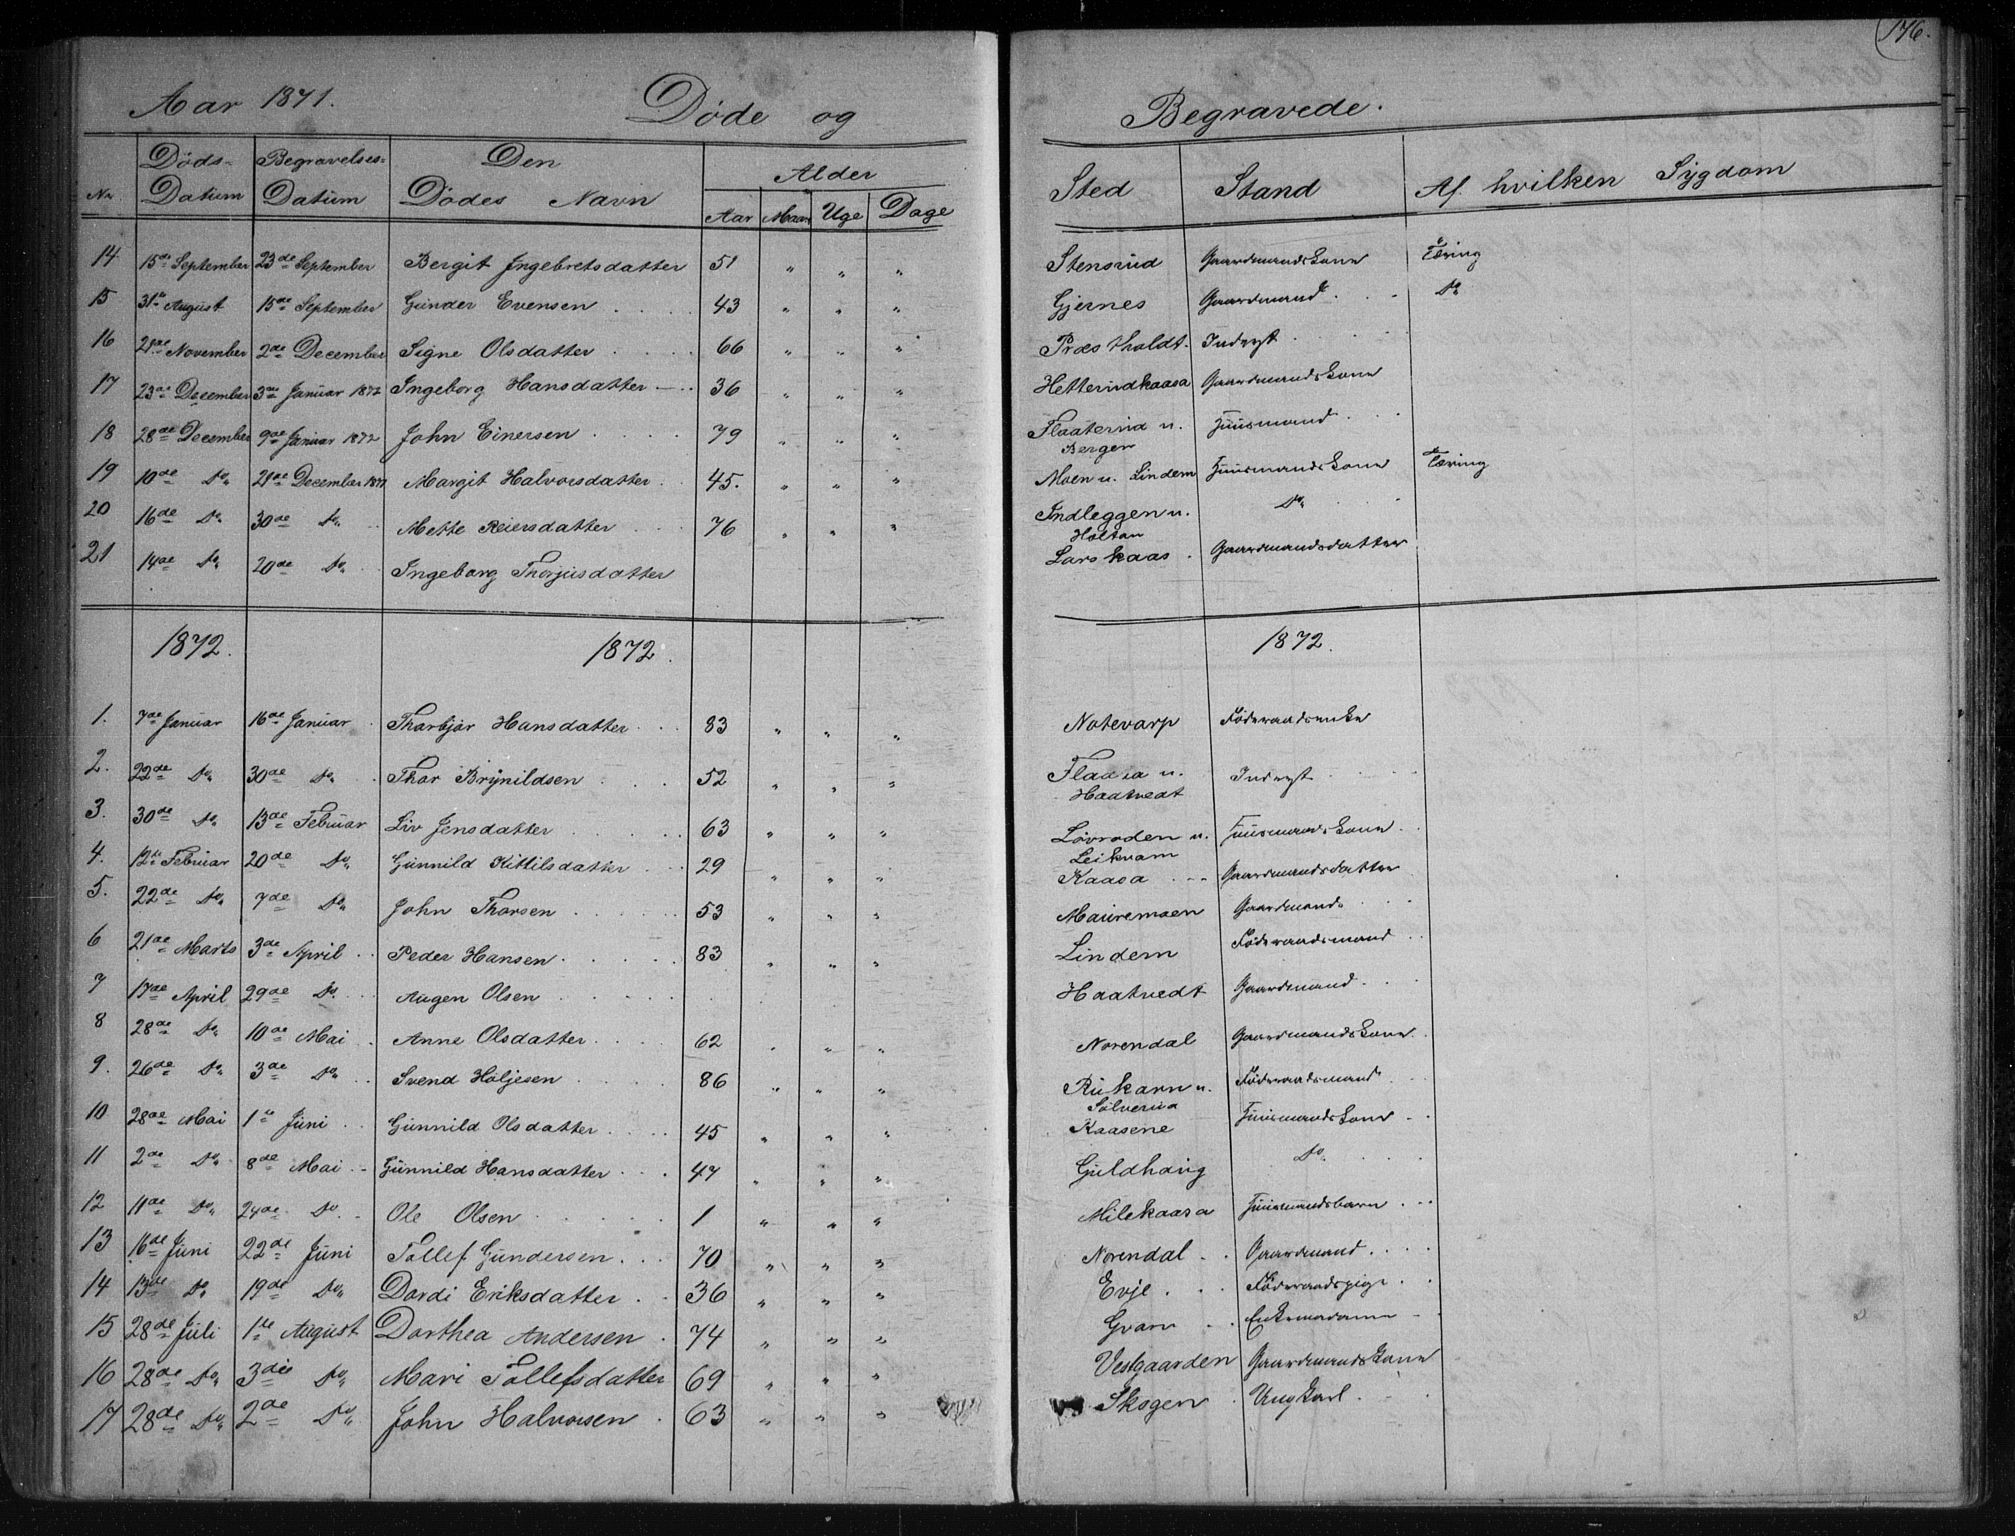 176.
Aar 1871. Døde og Begravede.
Nr. Døds-Datum Begravelses-Datum Den Dødes Navn Alder Aar Maan Uge Dage Sted Stand Af hvilken Sygdom
14 15de September 23de September Bergit Ingebretsdatter 51 " " " Stensrud Gaardmandskone Tæring
15 31te August 15de September Gunder Evensen 43 " " " Gjernes Gaardmand Do
16 21de November 2de December Signe Olsdatter 66 " " " Præstholdt Inderst
17 23de December 3die Januar 1872 Ingeborg Hansdatter 36 " " " Hetterudkaasa Gaardmandskone
18 28de December 9de Januar 1872 John Einersen 79 " " " Flaaterud u. Bergen Huusmand
19 10de Do 21de December 1871 Margit Halvorsdatter 45. " " " Moen u. Lindem Huusmandskone Tæring
20 16de Do 30de Do Mette Reiersdatter 76 " " " Indleggen u. Holtan Do
21 14de Do 20de Do Ingeborg Thorjusdatter Larskaas Gaardmandsdatter
1872. 1872. 1872.
1. 7de Januar 16de Januar Thorbjør Hansdatter 83 " " " Notevarp Föderaadsenke
2. 22de Do 30de Do Thor Brynildsen 52 " " " Flaasa u. Haatvedt Inderst
3. 30de Do 13de Februar Liv Jensdatter 63 " " " Lövroden u. Leikvam Huusmandskone
4. 12te Februar 20de Do Gunnild Kittilsdatter 29 " " " Kaasa Gaardmandsdatter
5. 22de Do 7de Do John Thorsen 53 " " " Mauremoen Gaardmand
6 21de Marts 3de April Peder Hansen 83 " " " Lindem Föderaadsmand
7 17de April 29de Do Augen Olsen Haatvedt Gaardmand
8 28de Do 10de Mai Anne Olsdatter 62 " " " Norendal Gaardmandskone
9. 26de Do 3de Do Svend Holjesen 86 " " " Rukarn u. Sølverud Föderaadsmand
10 28de Mai 1te Juni Gunnild Olsdatter 45 " " " Kaasene Huusmandskone
11 2de Do 8de Mai Gunnild Hansdatter 47 " " " Guldhaug Do
12 11de Do 24de Do Ole Olsen 1 " " " Milekaasa Huusmandsbarn
13 16de Juni 22de Juni Tollef Gundersen 70 " " " Norendal Gaardmand
14 13de Do 19de Do Dordi Eriksdatter 36 " " " Evje Föderaadspige
15 28de Juli 1te August Dorthea Andersen 74 " " " Gvarv Enkemadame
16 28de Do 3die Do Mari Tollefsdatter 69 " " " Vestgaarden Gaardmandskone
17 28de Do 2de Do John Halvorsen 63 " " " Skogen Ungkarl